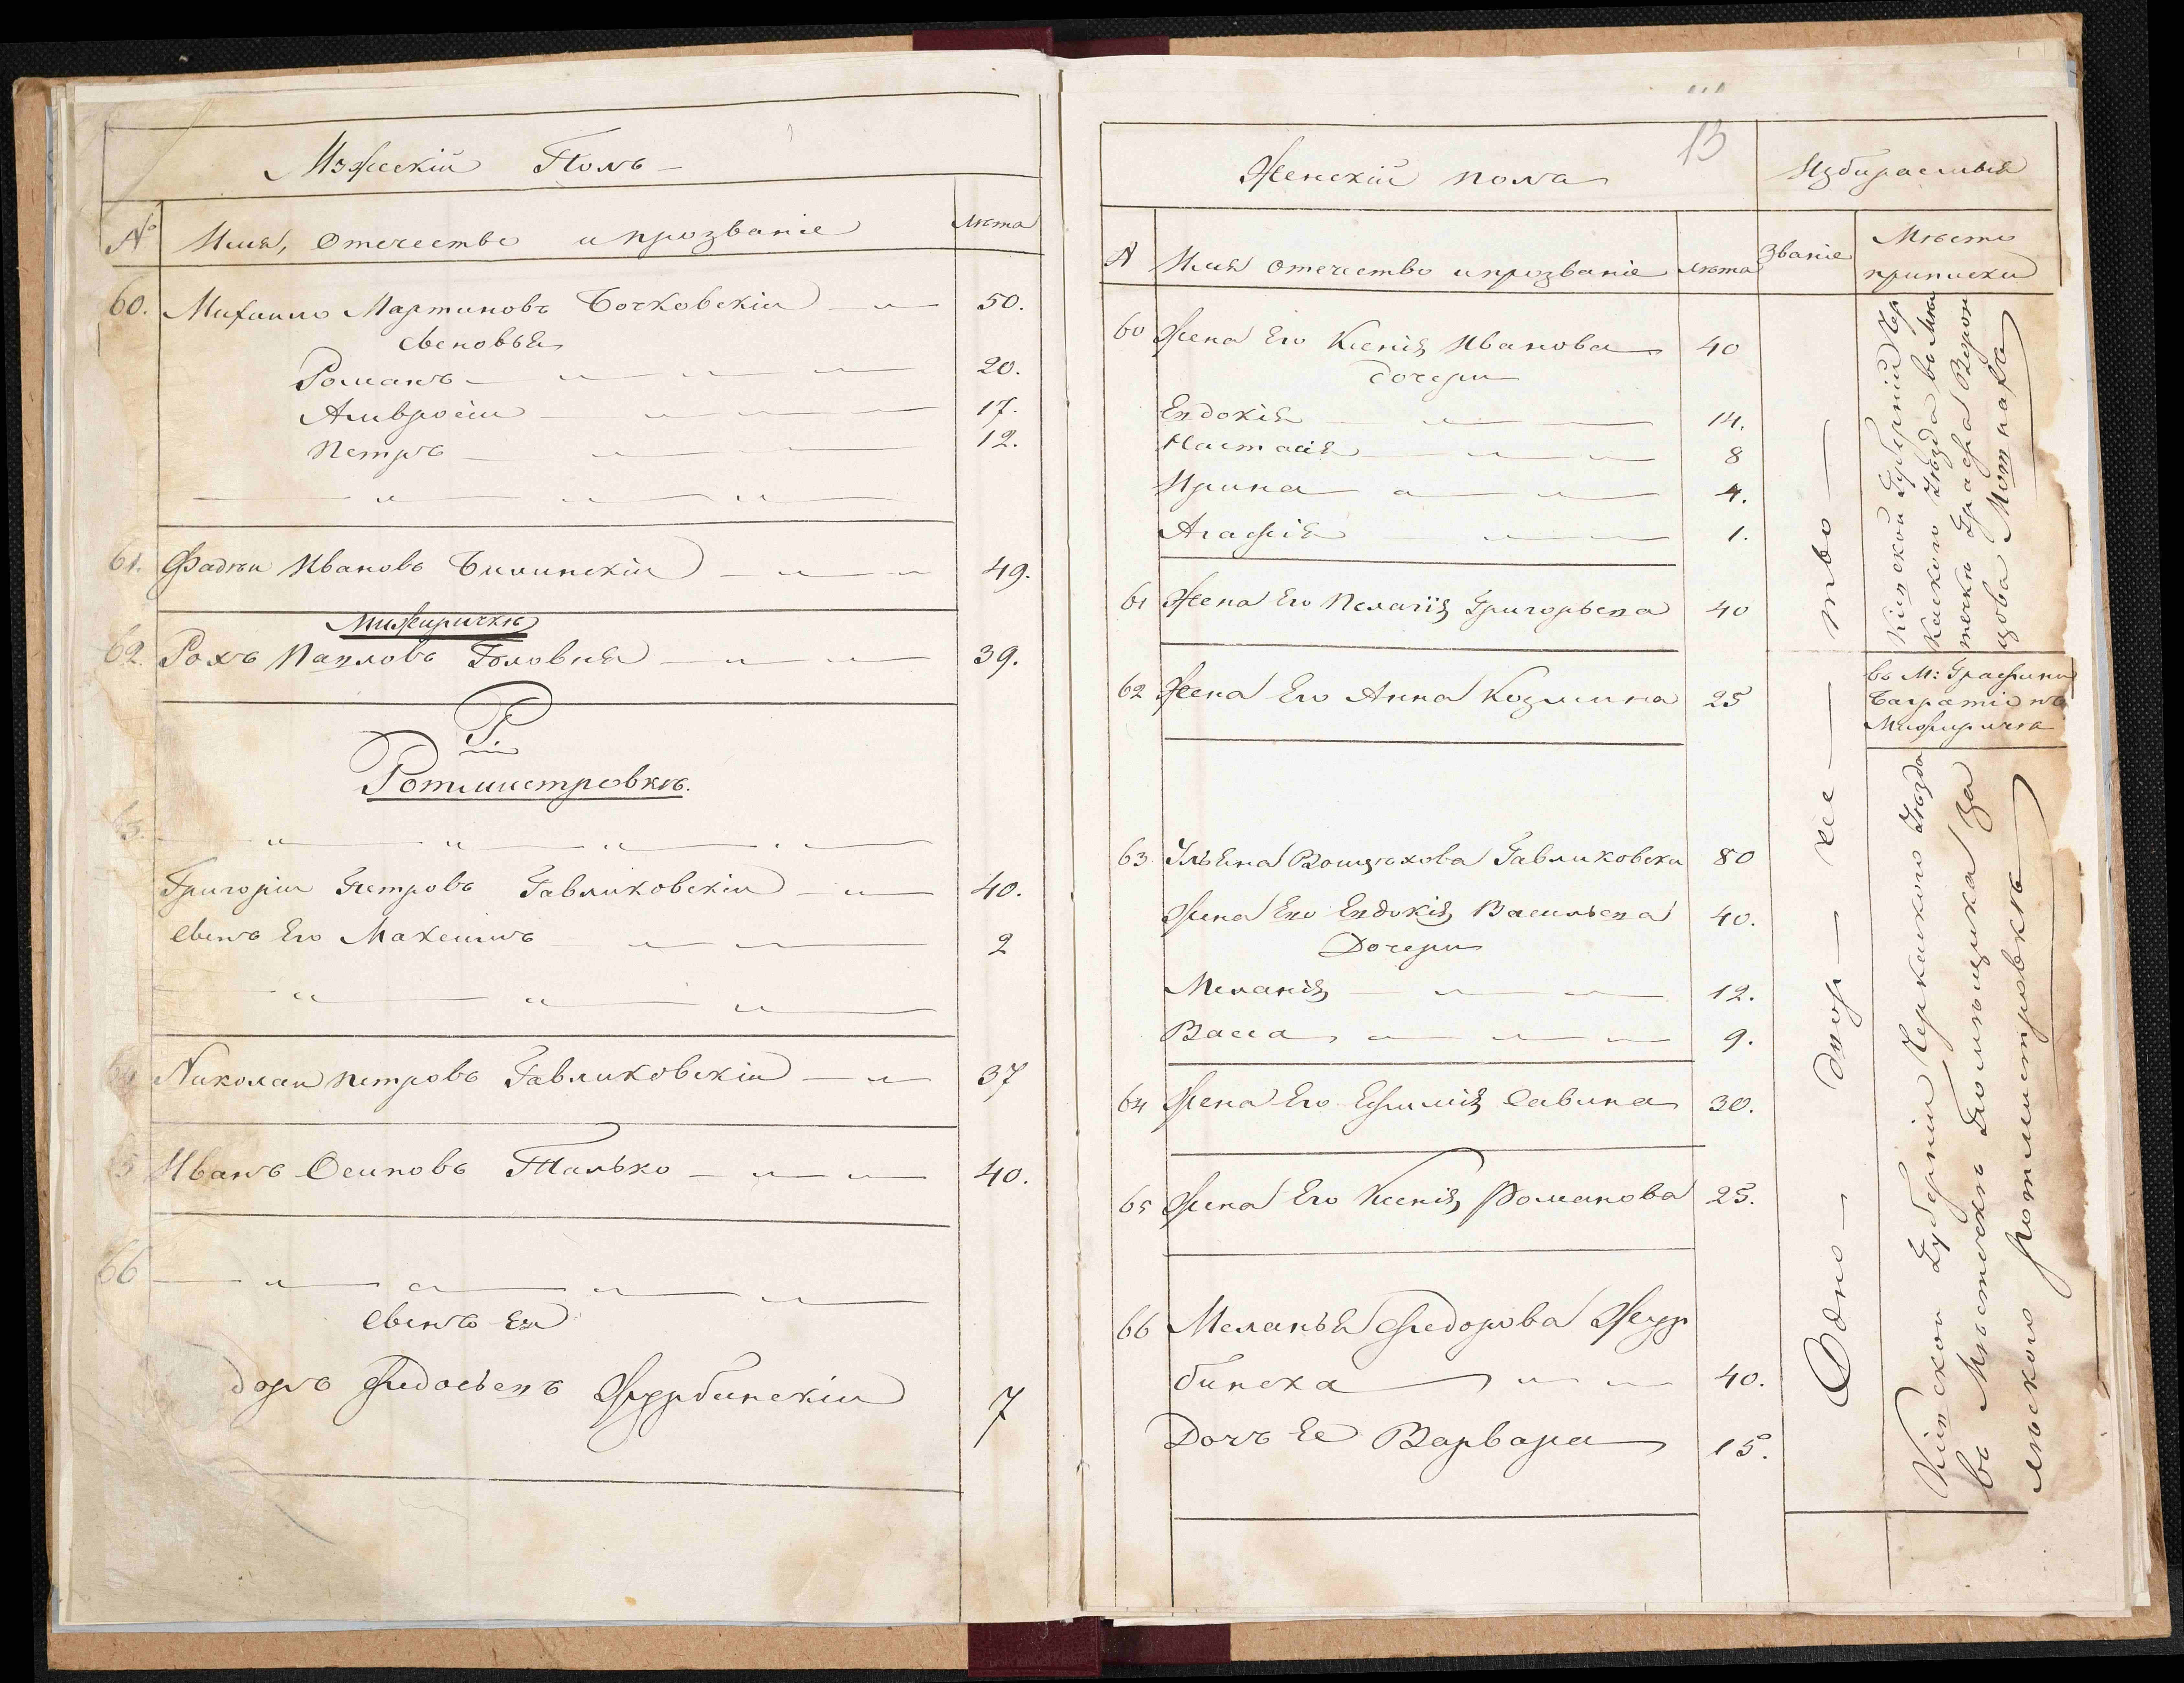 Мужескій Полъ
№ Имя, отечество и прозваніе лѣта
60. Михаило Мартиновъ Бочковскій 50.
сыновья
Романъ 20.
Амвросій 17.
Петръ 12.
61. Фадѣй Ивановъ Билинскій 49.
Мижиричкѣ
62. Рохъ Павловъ Головня 39.
Р.
Ротмистровкѣ.
63.
Григорій Петровъ Гавликовскій 40.
сынъ Его Максимъ 2
64 Николай Петровъ Гавликовскій 37
5 Иванъ Осиповъ Талько 40.
66
сынъ Ей
Федосьевъ 7
13
Женскій пола Избираемыя
№ Имя отечество и прозваніе лѣта Званіе Место приписки
60 Жена Его Ксенія Иванова 40
дочери
Евдокія 14.
Настасія 8
Ирина 4.
Агафія 1.
61 Жена Его Пелагія Григорьева 40
62 Жена Его Анна Козмина 25
63 Ульяна Гавликовска 80
Жена Его Евдокія Васильева 40.
Дочери
Меланія 12.
Васса 9.
64 Жена Его Ефимія Савина 30.
65 Жена Его Ксенія Романова 25.
66 Меланья Федорова Жур
бинска 40.
Дочъ Ее Варвара 15.
Одно — двор — че — тво
Кіевской Губерній Чер
каского Уѣзда въ Мѣс
течкѣ Графа Ворон
цова Мошнахъ
въ М: Графини
Багратіонъ
Мижиричкѣ
Кіевской Губерній Черкаского Уѣзда
въ Мѣстечкѣ Помѣщика За
лѣского Ротмистровкѣ